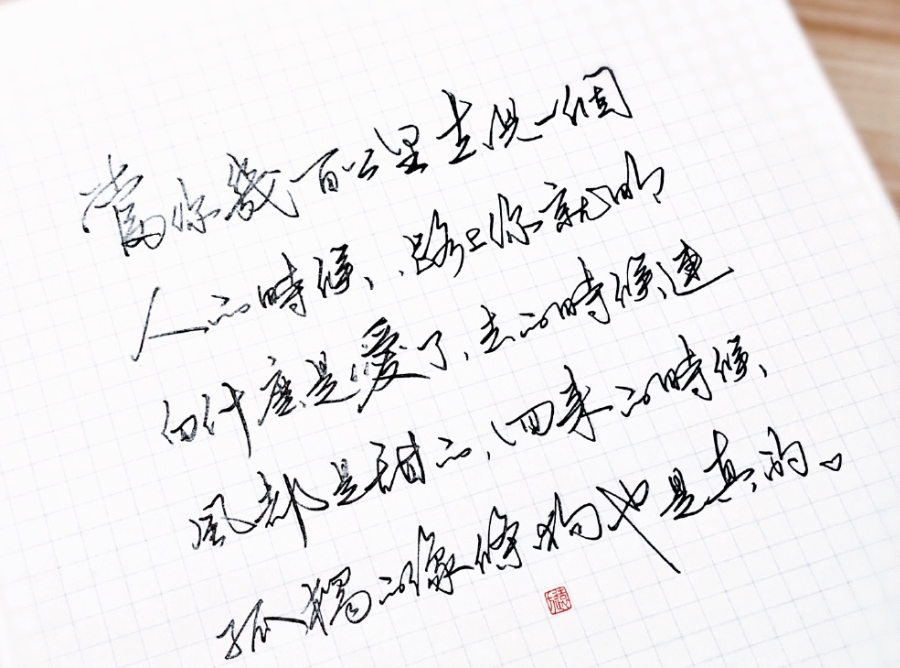 當你幾百公里去見一個
人的時候、路上你就明
白什麼是愛了、去的時候連
風都是甜的、回來的時候、
孤獨的像條狗也是真的。